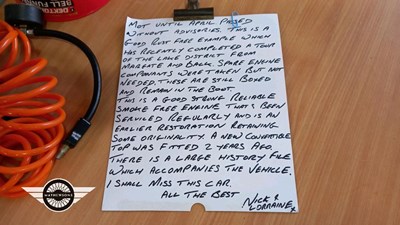 DEKTON
BELL FURN
MOT UNTIL APRIL PASSED
WITHOUT ADVISORIES. THIS IS A
GOOD RUST FREE EXAMPLE WHICH
HAS RECENTLY COMPLETED A TOUR
OF THE LAKE DISTRICT FROM
MARGATE AND BACK. SPARE ENGINE
COMPONANTS WERE TAKEN BUT NOT
NEEDED. THESE ARE STILL BOXED
AND REMAIN IN THE BOOT.
THIS IS A GOOD STRONG RELIABLE
SMOKE FREE ENGINE THATS BEEN
SERVICED REGULARLY AND IS AN
EARLIER RESTORATION RETAINING
SOME ORIGINALITY. A NEW CONVERTIBLE
TOP WAS FITTED 2 YEARS AGO.
THERE IS A LARGE HISTORY FILE
WHICH ACCOMPANIES THE VEHICLE.
I SHALL MISS THIS CAR.
ALL THE BEST
NICK &
LORRAINE x
MATHEWSONS